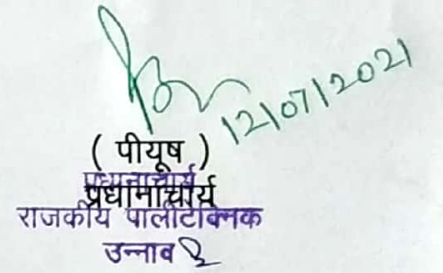 12/07/2021
( पीयूष )
प्रधानाचार्य
प्रधानाचार्य
राजकीय पालीटेक्निक
उन्नाव